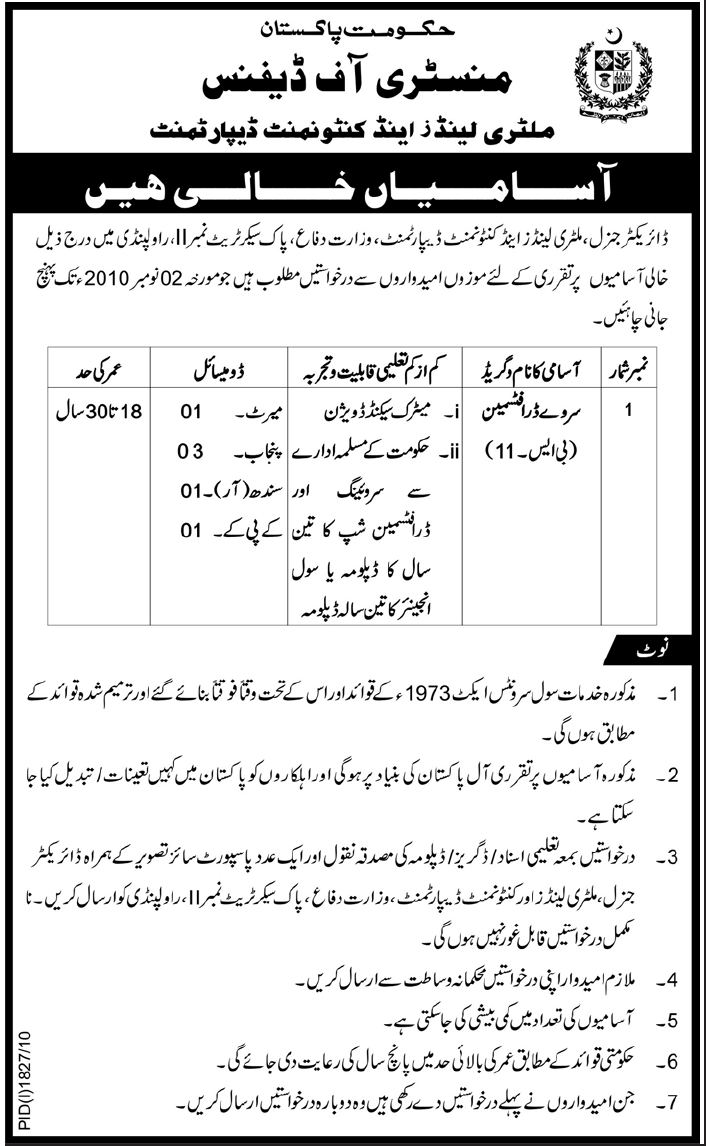 حکومت پاکستان
منسٹری آف ڈیفنس
ملٹری لینڈز اینڈ کنٹونمنٹ ڈیپارٹمنٹ
آسامیاں خالی ہیں
ڈائریکٹر جنرل، ملٹری لینڈز اینڈ کنٹونمنٹ ڈیپارٹمنٹ، وزارت دفاع، پاک سیکرٹریٹ نمبر II، راولپنڈی میں درج ذیل
خالی آسامیوں پر تقرری کے لئے موزوں امیدواروں سے درخواستیں مطلوب ہیں جو مورخہ 02 نومبر 2010ء تک پہنچ
جانی چاہئیں۔
نمبر شمار آسامی کا نام و گریڈ کم از کم تعلیمی قابلیت و تجربہ ڈومیسائل عمر کی حد
1 سروے ڈرافٹسمین i۔ میٹرک سیکنڈ ڈویژن میرٹ۔ 01 18 تا 30 سال
(بی ایس۔11) ii۔ حکومت کے مسلمہ ادارے پنجاب۔ 03
سے سروئینگ اور سندھ (آر)۔ 01
ڈرافٹسمین شپ کا تین کے پی کے۔ 01
سال کا ڈپلومہ یا سول
انجینئر کا تین سالہ ڈپلومہ
نوٹ
1۔ مذکورہ خدمات سول سرونٹس ایکٹ 1973ء کے قوائد اور اس کے تحت وقتاً فوقتاً بنائے گئے اور ترمیم شدہ قوائد کے
مطابق ہوں گی۔
2۔ مذکورہ آسامیوں پر تقرری آل پاکستان کی بنیاد پر ہوگی اور اہلکاروں کو پاکستان میں کہیں تعینات/ تبدیل کیا جا
سکتا ہے۔
3۔ درخواستیں بمعہ تعلیمی اسناد/ ڈگریز/ ڈپلومہ کی مصدقہ نقول اور ایک عدد پاسپورٹ سائز تصویر کے ہمراہ ڈائریکٹر
جنرل، ملٹری لینڈز اور کنٹونمنٹ ڈیپارٹمنٹ، وزارت دفاع، پاک سیکرٹریٹ نمبر II، راولپنڈی کو ارسال کریں۔ نا
مکمل درخواستیں قابل غور نہیں ہوں گی۔
4۔ ملازم امیدوار اپنی درخواستیں محکمانہ وساطت سے ارسال کریں۔
5۔ آسامیوں کی تعداد میں کمی بیشی کی جاسکتی ہے۔
6۔ حکومتی قوائد کے مطابق عمر کی بالائی حد میں پانچ سال کی رعایت دی جائے گی۔
7۔ جن امیدواروں نے پہلے درخواستیں دے رکھی ہیں وہ دوبارہ درخواستیں ارسال کریں۔
PID(I)1827/10